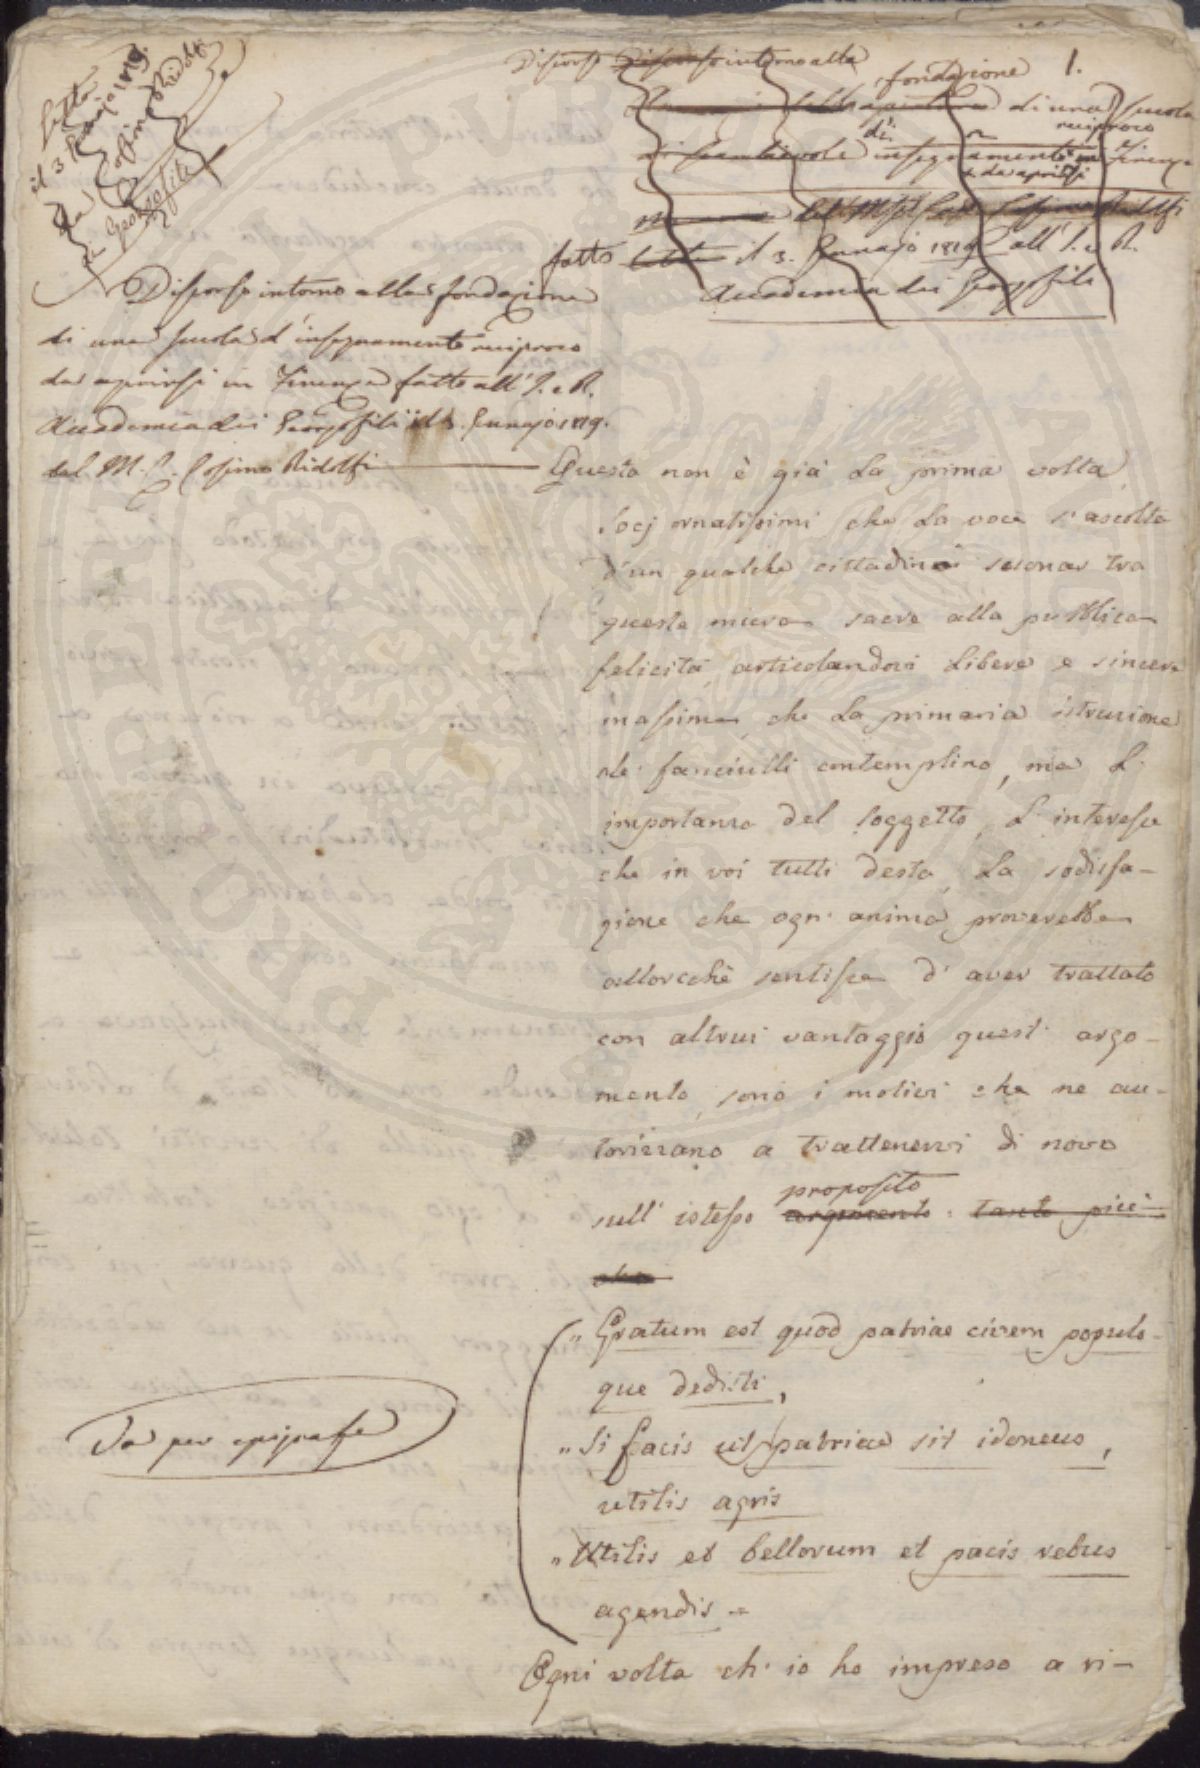 Letta
il 3 Gennajo 1819.
da Cosimo Ridolfi
ai Georgofili
1.
Discorso Discorso intorno alla
fondazione
di una scuola
di reciproco
scambievole insegnamento in Firenze
da aprirsi
fatto letto il 3. Gennajo 1819 all' I. e R.
Accademia dei Georgofili
Discorso intorno alla fondazione
di una scuola d'insegnamento reciproco
da aprirsi in Firenze fatto all' I. e R.
Accademia dei Georgofili il dì 3. Gennajo 1819.
dal M. C. Cosimo Ridolfi
Questa non è già la prima volta,
Socj ornatissimi che la voce s'ascolta
d'un qualche cittadino risonar tra
queste mura sacre alla pubblica
felicità, articolandovi libere e sincere
massime, che la primaria istruzione
de' fanciulli contemplino, ma l'
importanza del soggetto, l'interesse
che in voi tutti desta, la sodisfa-
zione che ogn' anima proverebbe
allorchè sentisse d' aver trattato
con altrui vantaggio quest' argo-
mento, sono i motivi che ne au-
torizzano a trattenervi di novo
proposito
sull' istesso argomento. tanto più
che
" Gratum est quod patriae civem populo-
que dedisti,
" Si facis ut patriae sit idoneus,
utilis agris
" Utilis et bellorum et pacis rebus
agendis =
Va per epigrafe
Ogni volta ch' io ho impreso a ri-